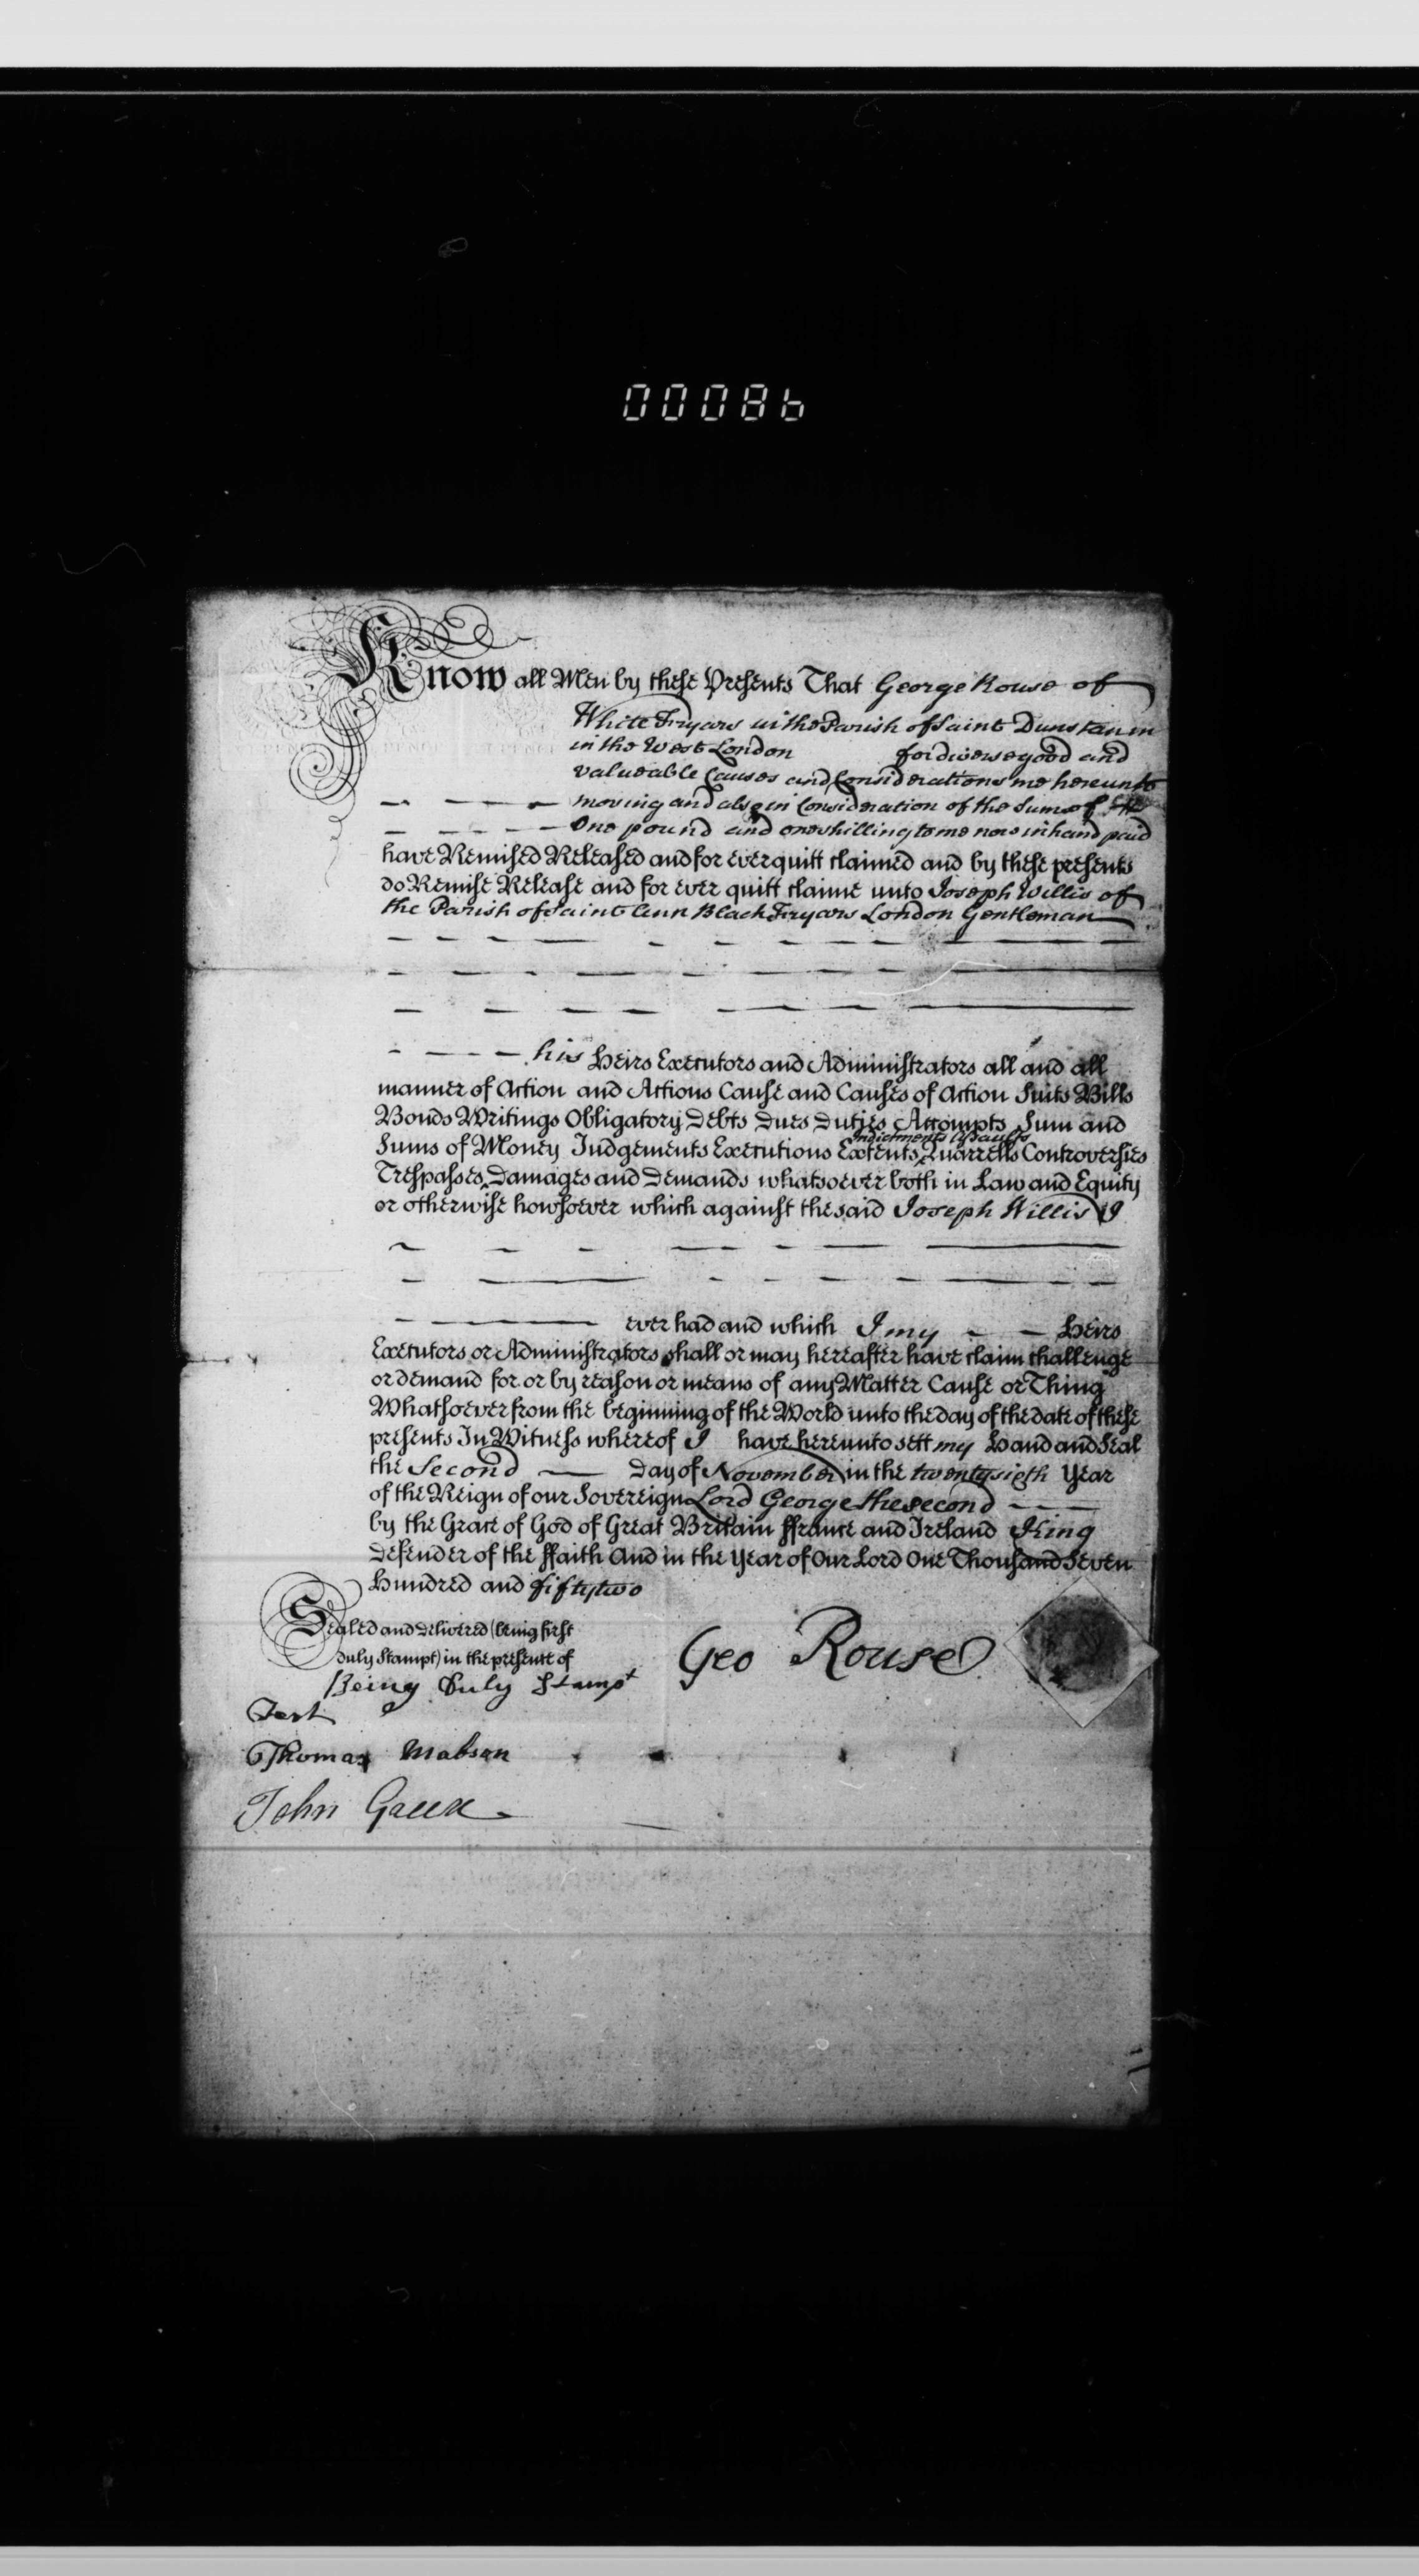 00086
Know all Men by these Presents That George Rouse of
White Fryars in the Parish of Saint Dunstan in
in the West London for diverse good and
valueable Causes and Considerations me hereunto
moving and also in Consideration of the Sum of
One pound and one shilling to me now in hand paid
have Remised Released and for ever quitt claimed and by these presents
do Remise Release and for ever quitt claime unto Joseph Willis of
the Parish of Saint Ann Black Fryars London Gentleman
his Heirs Executors and Administrators all and all
manner of Action and Actions Cause and Causes of Action Suits Bills
Bonds Writings Obligatory Debts Dues Duties Accompts Sum and
Indictments Assaults
Sums of Money Judgements Executions Extents Quarrells Controversies
Trespasses Damages and Demands whatsoever both in Law and Equity
or otherwise howsoever which against the said Joseph Willis I
ever had and which I my Heirs
Executors or Administrators shall or may hereafter have claim challenge
or demand for or by reason or means of any Matter Cause or Thing
Whatsoever from the beginning of the World unto the day of the date of these
presents In Witness whereof I have hereunto sett my Hand and Seal
the Second Day of November in the twenty sixth Year
of the Reign of our Sovereign Lord George the second
by the Grace of God of Great Britain ffrance and Ireland King
Defender of the ffaith And in the Year of Our Lord One Thousand Seven
Hundred and fifty two
Sealed and delivered (being first
duly Stampt) in the presence of
Geo Rouse
Being Duly Stampt
Test
Thomas Mabson
John Green